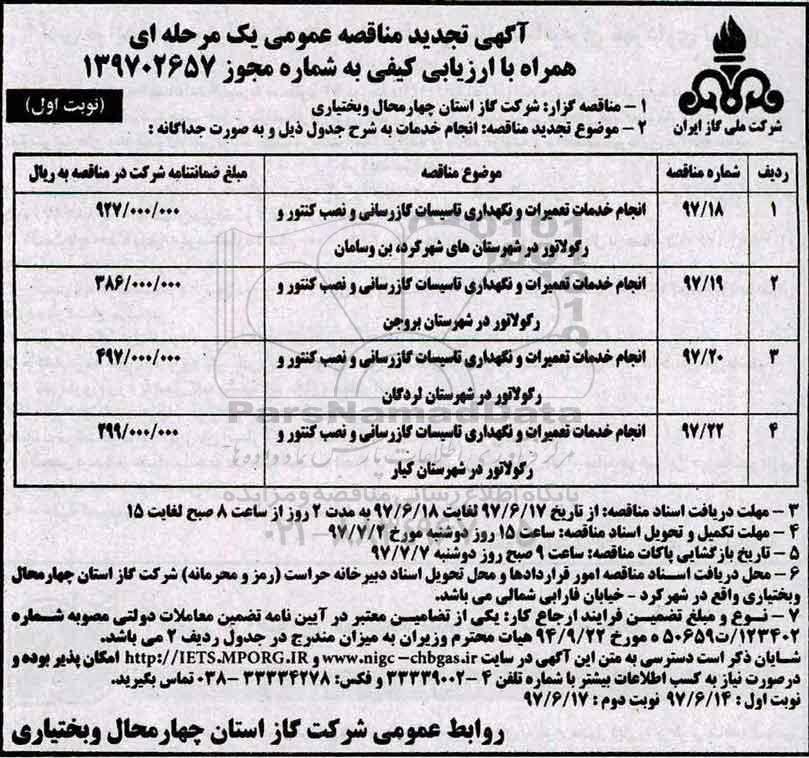 آگهی تجدید مناقصه عمومی یک مرحله ای
همراه با ارزیابی کیفی به شماره مجوز ۱۳۹۷۰۲۶۵۷
(نوبت اول)
شرکت ملی گاز ایران
۱ – مناقصه گزار: شرکت گاز استان چهارمحال وبختیاری
۲ – موضوع تجدید مناقصه: انجام خدمات به شرح جدول ذیل و به صورت جداگانه :
ردیف شماره مناقصه موضوع مناقصه مبلغ ضمانتنامه شرکت در مناقصه به ریال
۱ ۹۷/۱۸ انجام خدمات تعمیرات و نگهداری تاسیسات گازرسانی و نصب کنتور و ۹۲۷/۰۰۰/۰۰۰
رگولاتور در شهرستان های شهرکرد، بن وسامان
۲ ۹۷/۱۹ انجام خدمات تعمیرات و نگهداری تاسیسات گازرسانی و نصب کنتور و ۳۸۶/۰۰۰/۰۰۰
رگولاتور در شهرستان بروجن
۳ ۹۷/۲۰ انجام خدمات تعمیرات و نگهداری تاسیسات گازرسانی و نصب کنتور و ۴۹۷/۰۰۰/۰۰۰
رگولاتور در شهرستان لردگان
۴ ۹۷/۲۲ انجام خدمات تعمیرات و نگهداری تاسیسات گازرسانی و نصب کنتور و ۲۹۹/۰۰۰/۰۰۰
رگولاتور در شهرستان کیار
ParsNamadData
پایگاه اطلاع رسانی مناقصه و مزایده
۳ – مهلت دریافت اسناد مناقصه: از تاریخ ۹۷/۶/۱۷ لغایت ۹۷/۶/۱۸ به مدت ۲ روز از ساعت ۸ صبح لغایت ۱۵
۴ – مهلت تکمیل و تحویل اسناد مناقصه: ساعت ۱۵ روز دوشنبه مورخ ۹۷/۷/۲
۵ – تاریخ بازگشایی پاکات مناقصه: ساعت ۹ صبح روز دوشنبه ۹۷/۷/۷
۶ – محل دریافت اسـناد مناقصه امور قراردادها و محل تحویل اسناد دبیرخانه حراست (رمز و محرمانه) شرکت گاز استان چهارمحال
وبختیاری واقع در شهرکرد – خیابان فارابی شمالی می باشد.
۷ – نـوع و مبلغ تضمیـن فرایند ارجاع کار: یکی از تضامیـن معتبر در آیین نامه تضمین معاملات دولتی مصوبه شـماره
۱۲۳۴۰۲/ت۵۰۶۵۹ ه مورخ ۹۴/۹/۲۲ هیات محترم وزیران به میزان مندرج در جدول ردیف ۲ می باشد.
شـایان ذکر است دسترسی به متن این آگهی در سایت www.nigc-chbgas.ir و http://IETS.MPORG.IR امکان پذیر بوده و
درصورت نیاز به کسب اطلاعات بیشتر با شماره تلفن ۴ –۳۳۳۳۹۰۰۲ و فکس: ۳۳۳۳۴۲۷۸ –۰۳۸ تماس بگیرید.
نوبت اول : ۹۷/۶/۱۴ نوبت دوم : ۹۷/۶/۱۷
روابط عمومی شرکت گاز استان چهارمحال وبختیاری